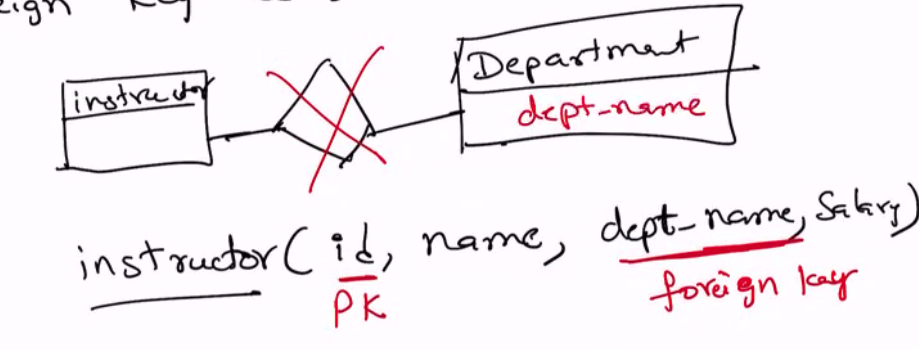 eign key
instructor
Department
dept-name
instructor ( id, name, dept-name, Salary)
PK
foreign key